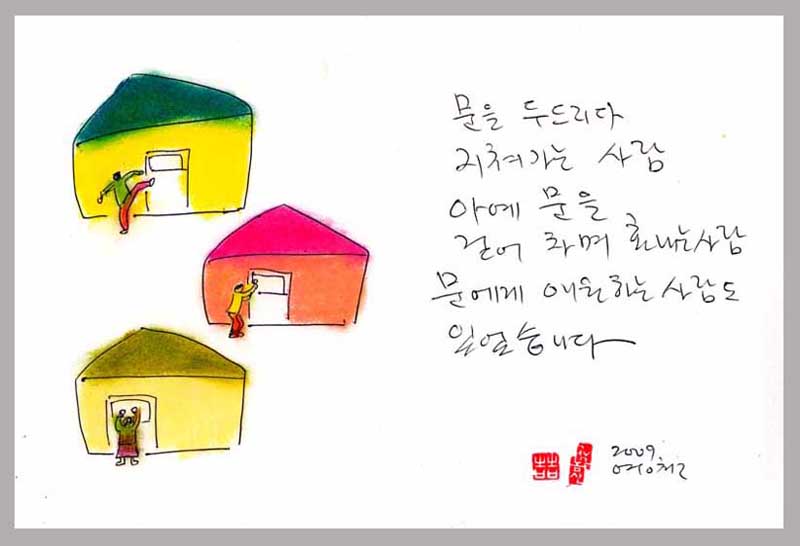 문을 두드리다
지쳐가는 사람
아예 문을
걷어 차며 화내는 사람
문에게 애원하는 사람도
있었습니다
2009.